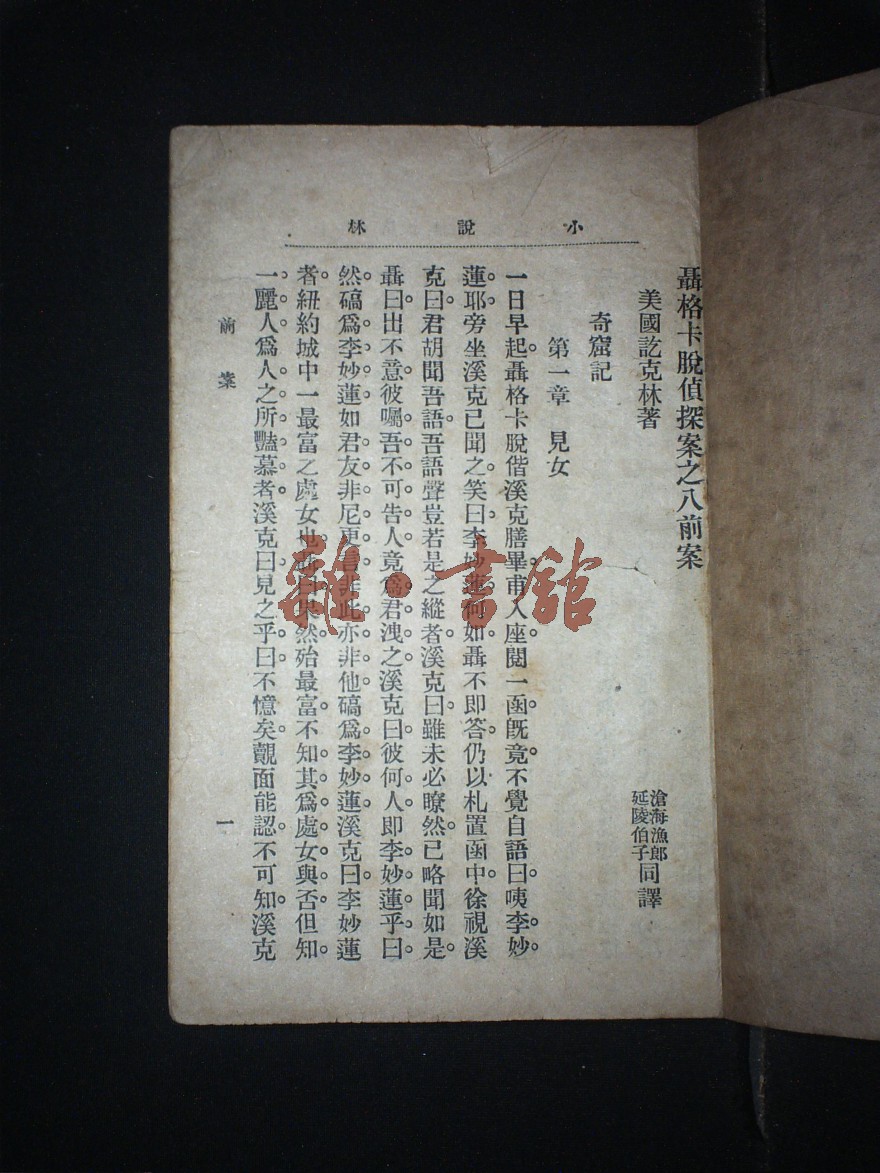 小說林
聶格卡脫偵探案之八前案
美國訖克林著
滄海漁郎
延陵伯子
同譯
奇窟記
第一章 見女
一日早起。聶格卡脫偕溪克膳畢。甫入座。閱一函。旣竟。不覺自語曰。咦。李妙
蓮耶。旁坐溪克已聞之。笑曰。李妙蓮何如。聶不即答。仍以札置函中。徐視溪
克曰。君胡聞吾語。吾語聲豈若是之縱者。溪克曰。雖未必瞭然。已略聞如是。
聶曰。出不意。彼囑吾不可告人。竟爲君洩之。溪克曰。彼何人。即李妙蓮乎。曰。
然。碻爲李妙蓮。如君友非尼更言。非此亦非他。碻爲李妙蓮。溪克曰。李妙蓮
者。紐約城中一最富之處女也。聶曰。果然。殆最富。不知其爲處女與否。但知
一麗人。爲人之所豔慕者。溪克曰。見之乎。曰。不憶矣。覿面能認。不可知。溪克
前案
一
雜·書館